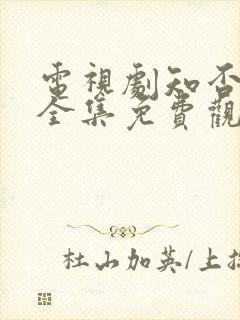 電視劇知否
全集免費觀
杜山加英/上